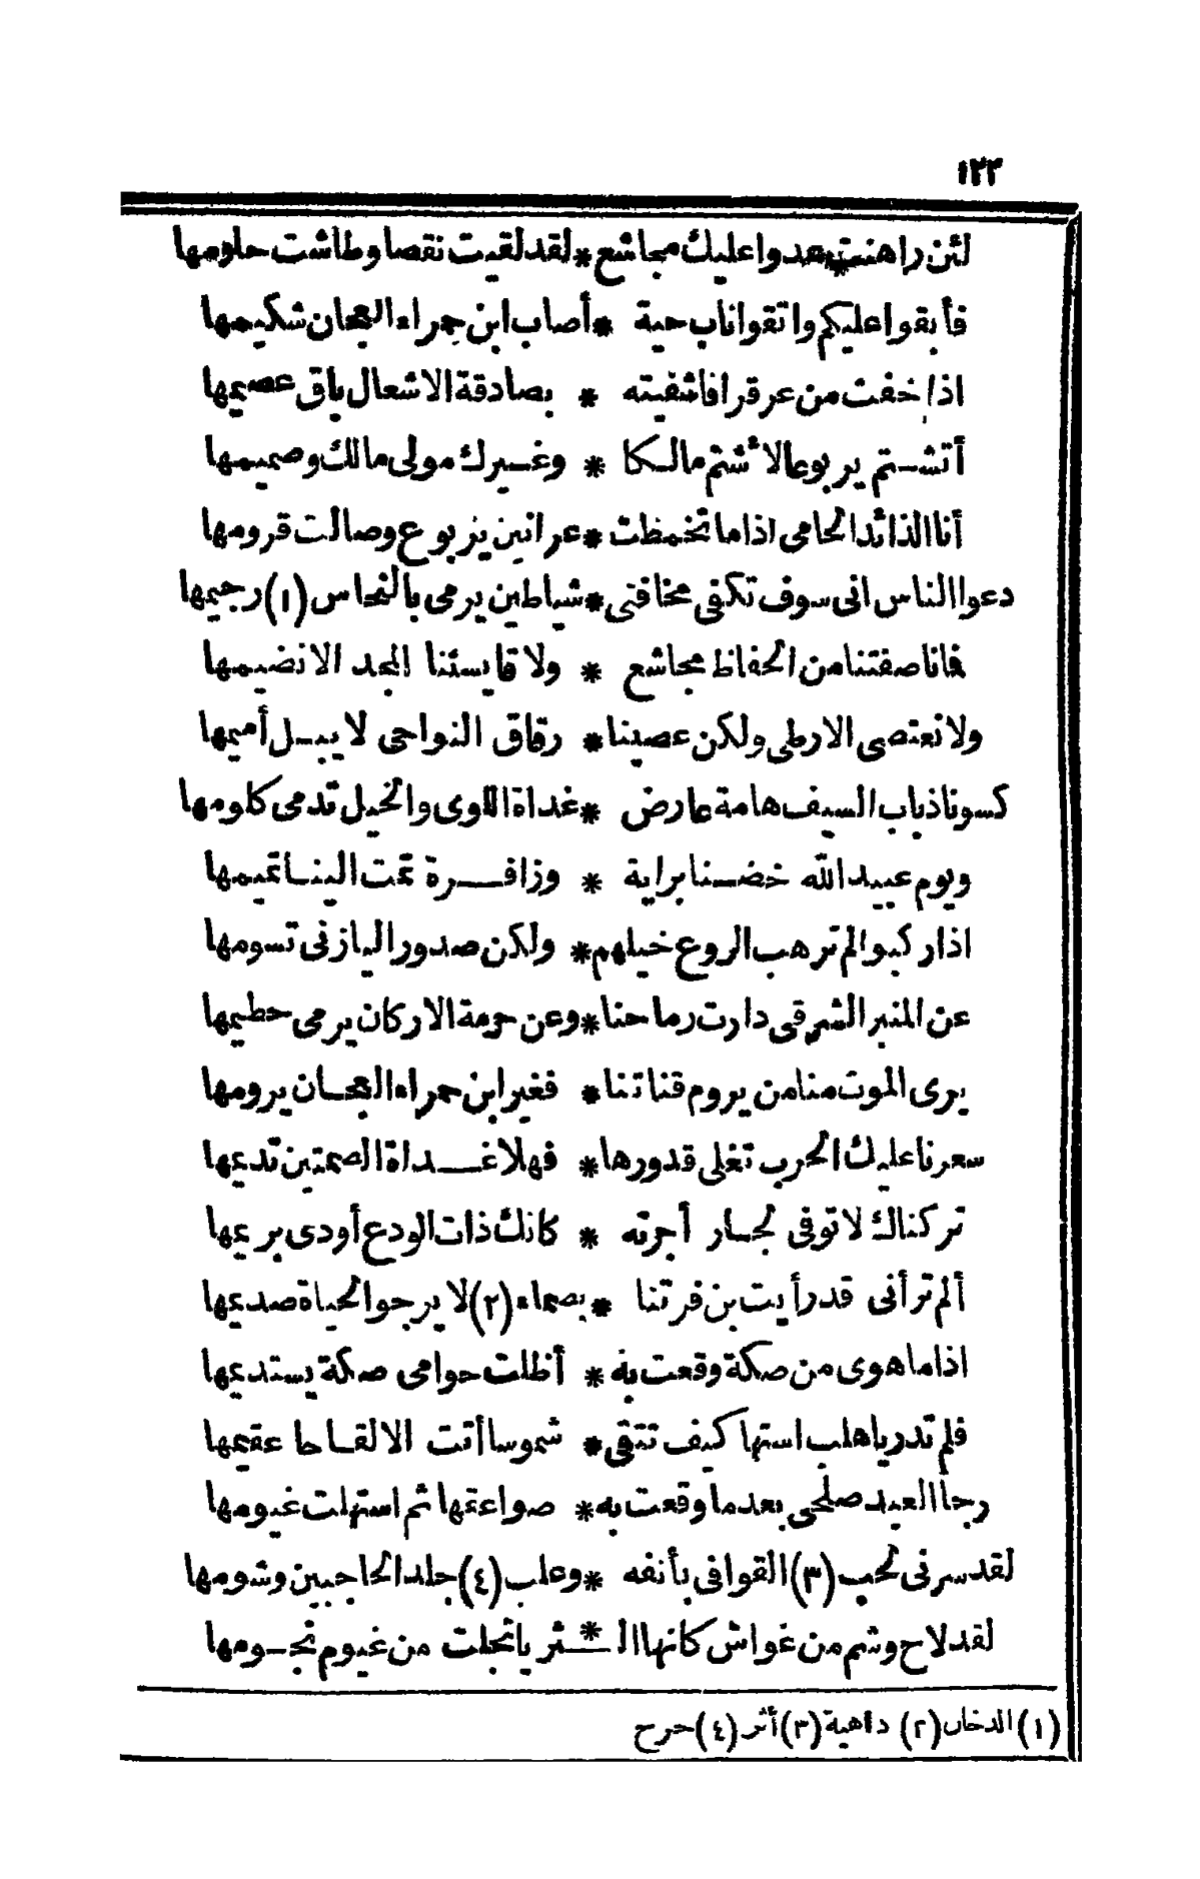 ١٢٣
لئن راهنت عدوا عليك مجاشع * لقد لقيت نقصا وطاشت حلومها
فأبقوا عليكم واتقوا ناب حية * أصاب ابن حمراء العجان شكيمها
اذا خفت من عر قرافا شفيته * بصادقة الاشعال باق عصيمها
أتشتم يربوعا لأشتم مالكا * وغيرك مولى مالك وصميمها
أنا الذائد الحامى اذا ما تخمطت * عرانين يربوع وصالت قرومها
دعوا الناس انى سوف تكفى مخافتى * شياطين يرمى بالنحاس (١) رجيمها
فما ناصفتنا من الحفاظ مجاشع * ولا قايستنا المجد الا نضيمها
ولا نعتصى الارطى ولكن عصينا * رقاق النواحى لا يبل أميمها
كسونا ذباب السيف هامة عارض * غداة اللوى والخيل تدمى كلومها
ويوم عبيد الله خضنا براية * وزافرة تمت الينا تميمها
اذا ركبوا لم ترهب الروع خيلهم * ولكن صدور اليازنى تسومها
عن المنبر الشرقى دارت رماحنا * وعن حرمة الاركان يرمى حطيمها
يرى الموت منا من يروم قناتنا * فغير ابن حمراء العجان يرومها
سعرنا عليك الحرب تغلى قدورها * فهلا غداة الصمتين تديمها
تركناك لا توفى لجار أجرته * كانك ذات الودع أودى بريمها
ألم تر أنى قد رأيت بن فرتنا * بصماء (٢) لا يرجو الحياة صديمها
اذا ما هوى من صكة وقعت به * أظلت حوامى صكة يستديمها
فلم تدر يا هلب استها كيف تتقى * شموسا أتت الا لقاحا عقيمها
رجا العبد صلحى بعدما وقعت به * صواعقها ثم استهلت غيومها
لقد سرنى لحب (٣) القوافى بأنفه * وعلب (٤) جلد الحاجبين وشومها
لقد لاح وشم من غواش كانها الـ * ـثريا تجلت من غيوم نجومها
(١) الدخان (٢) داهية (٣) أثر (٤) حرح